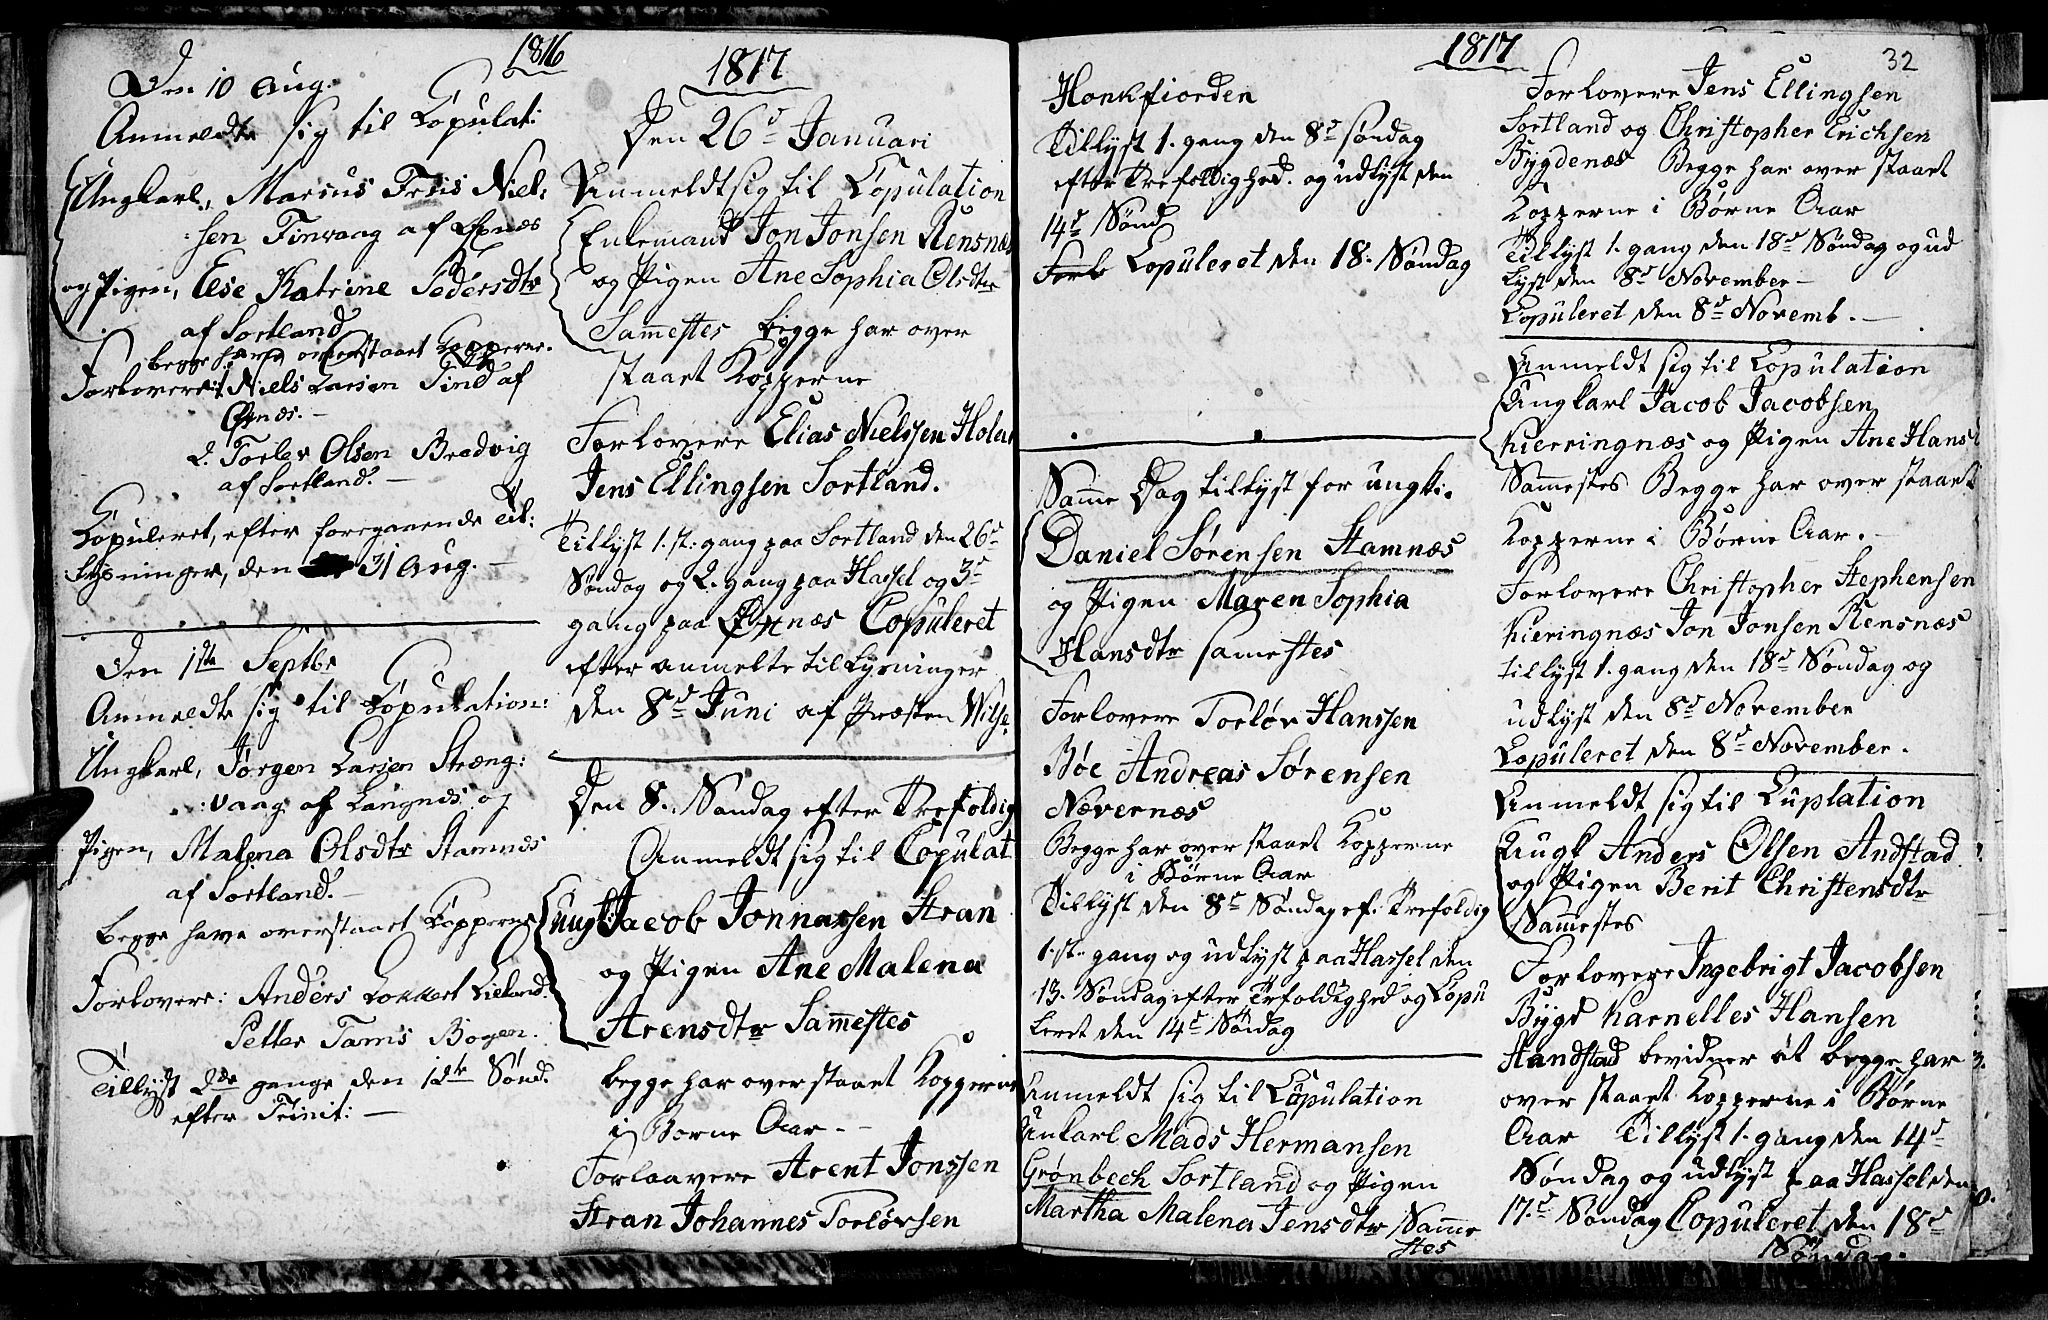 1816
Den 10 Aug:
Anmeldte sig til Copulat:
Ungkarl, Marcus Friis Niel:
sen Finvaag af Øxnæs
og Pigen, Else Katrine Pedersdtr
af Sortland
begge have overstaaet Kopperne.
Forlovere: 1. Niels Larsen Tind af
Øxnæs. -
2. Torlev Olsen Bredvig
af Sortland. -
Copuleret, efter foregaaende Til:
lysninger, den 31 Aug. -
Den 1ste Septbr
Anmeldte sig til Copulation:
Ungkarl, Jørgen Larsen Stræng:
:vaag af Langnes og
Pigen, Malena Olsdtr Stamnes
af Sortland. -
begge have overstaaet Kopperne
Forlovere: Anders Lokkert Lieland.
Petter Tams Bogen.
Tillyst 2de gange den 12te Sønd.
efter Trinit: -
1817
Den 26d Januari
Anmeldt sig til Copulation
Enkemand Jon Jonsen Rensnæs
og Pigen Ane Sophia Olsdtr
Sammestes begge har over
staaet Kopperne
Forlovere Elias Nielssen Holm
Jens Ellingsen Sortland.
Tillyst 1.st: gang paa Sortland den 26d
Søndag og 2. gang paa Hassel og 3d
gang paa Øxnæs Copuleret
efter anmelte tillysninger
den 8d Juni af Præsten Wilse.
Den 8. Søndag efter Trefoldig
Anmeldt sig til Copulat
Ungk: Jacob Jonnassen Stran
og Pigen Ane Malena
Arensdtr Sammestes
begge har over staaet Kopperne
i Børne Aar. -
Forlaavere Arent Jonssen
Stran Johannes Torløvsen
1817
32
Honkfiorden
Tillyst 1. gang den 8d søndag
efter trefoldighed. og udlyst den
14d Sønd
Copuleret den 18. Søndag
Samme Dag tillyst for ungk.
Daniel Sørensen Stamnæs
og Pigen Maren Sophia
Hansdtr samestes
Forlovere Torløv Hanssen
Bøe Andreas Sørensen
Nævernæs
Begge har over staaet Kopperne
i Børne Aar
Tillyst den 8d Søndag ef: Trefoldig
1.st. gang og udlyst paa Hassel den
13. Søndag efter Trefoldighed og Copu
leret den 14d Søndag
Anmeldt sig til Copulation
Unkarl Mads Hermansen
Grønbech Sortland og Pigen
Martha Malena Jensdtr Samme
stes
Forlovere Jens Ellingsen
Sortland og Christopher Erichsen
Bygdenæs Begge har over staaet
Kopperne i Børne Aar
Tillyst 1. gang den 18d Søndag og ud
lyst den 8d November -
Copuleret den 8d Novemb. -
Anmeldt sig til Copulation
Ungkarl Jacob Jacobsen
Kierringnæs og Pigen Ane Hansd
Sammestes Begge har over staaet
Kopperne i Børne Aar. -
Forlovere Christopher Stephensen
Kieringnæs Jon Jonsen Rensnæs
tillyst 1. gang den 18d Søndag og
udlyst den 8d November
Copuleret den 8d November.
Anmeldt sig til Cuplation
Ungk Anders Olsen Andstad
og Pigen Berit Christensdtr
Sammestes
Forlovere Ingebrigt Jacobsen
Bygd Karnelles Hansen
Handstad bevidner at begge har
over staaet Kopperne i Børne
Aar Tillyst 1. gang den 14d
Søndag og udlyst paa Hassel den
17.d Søndag Copuleret den 18d
Søndag.